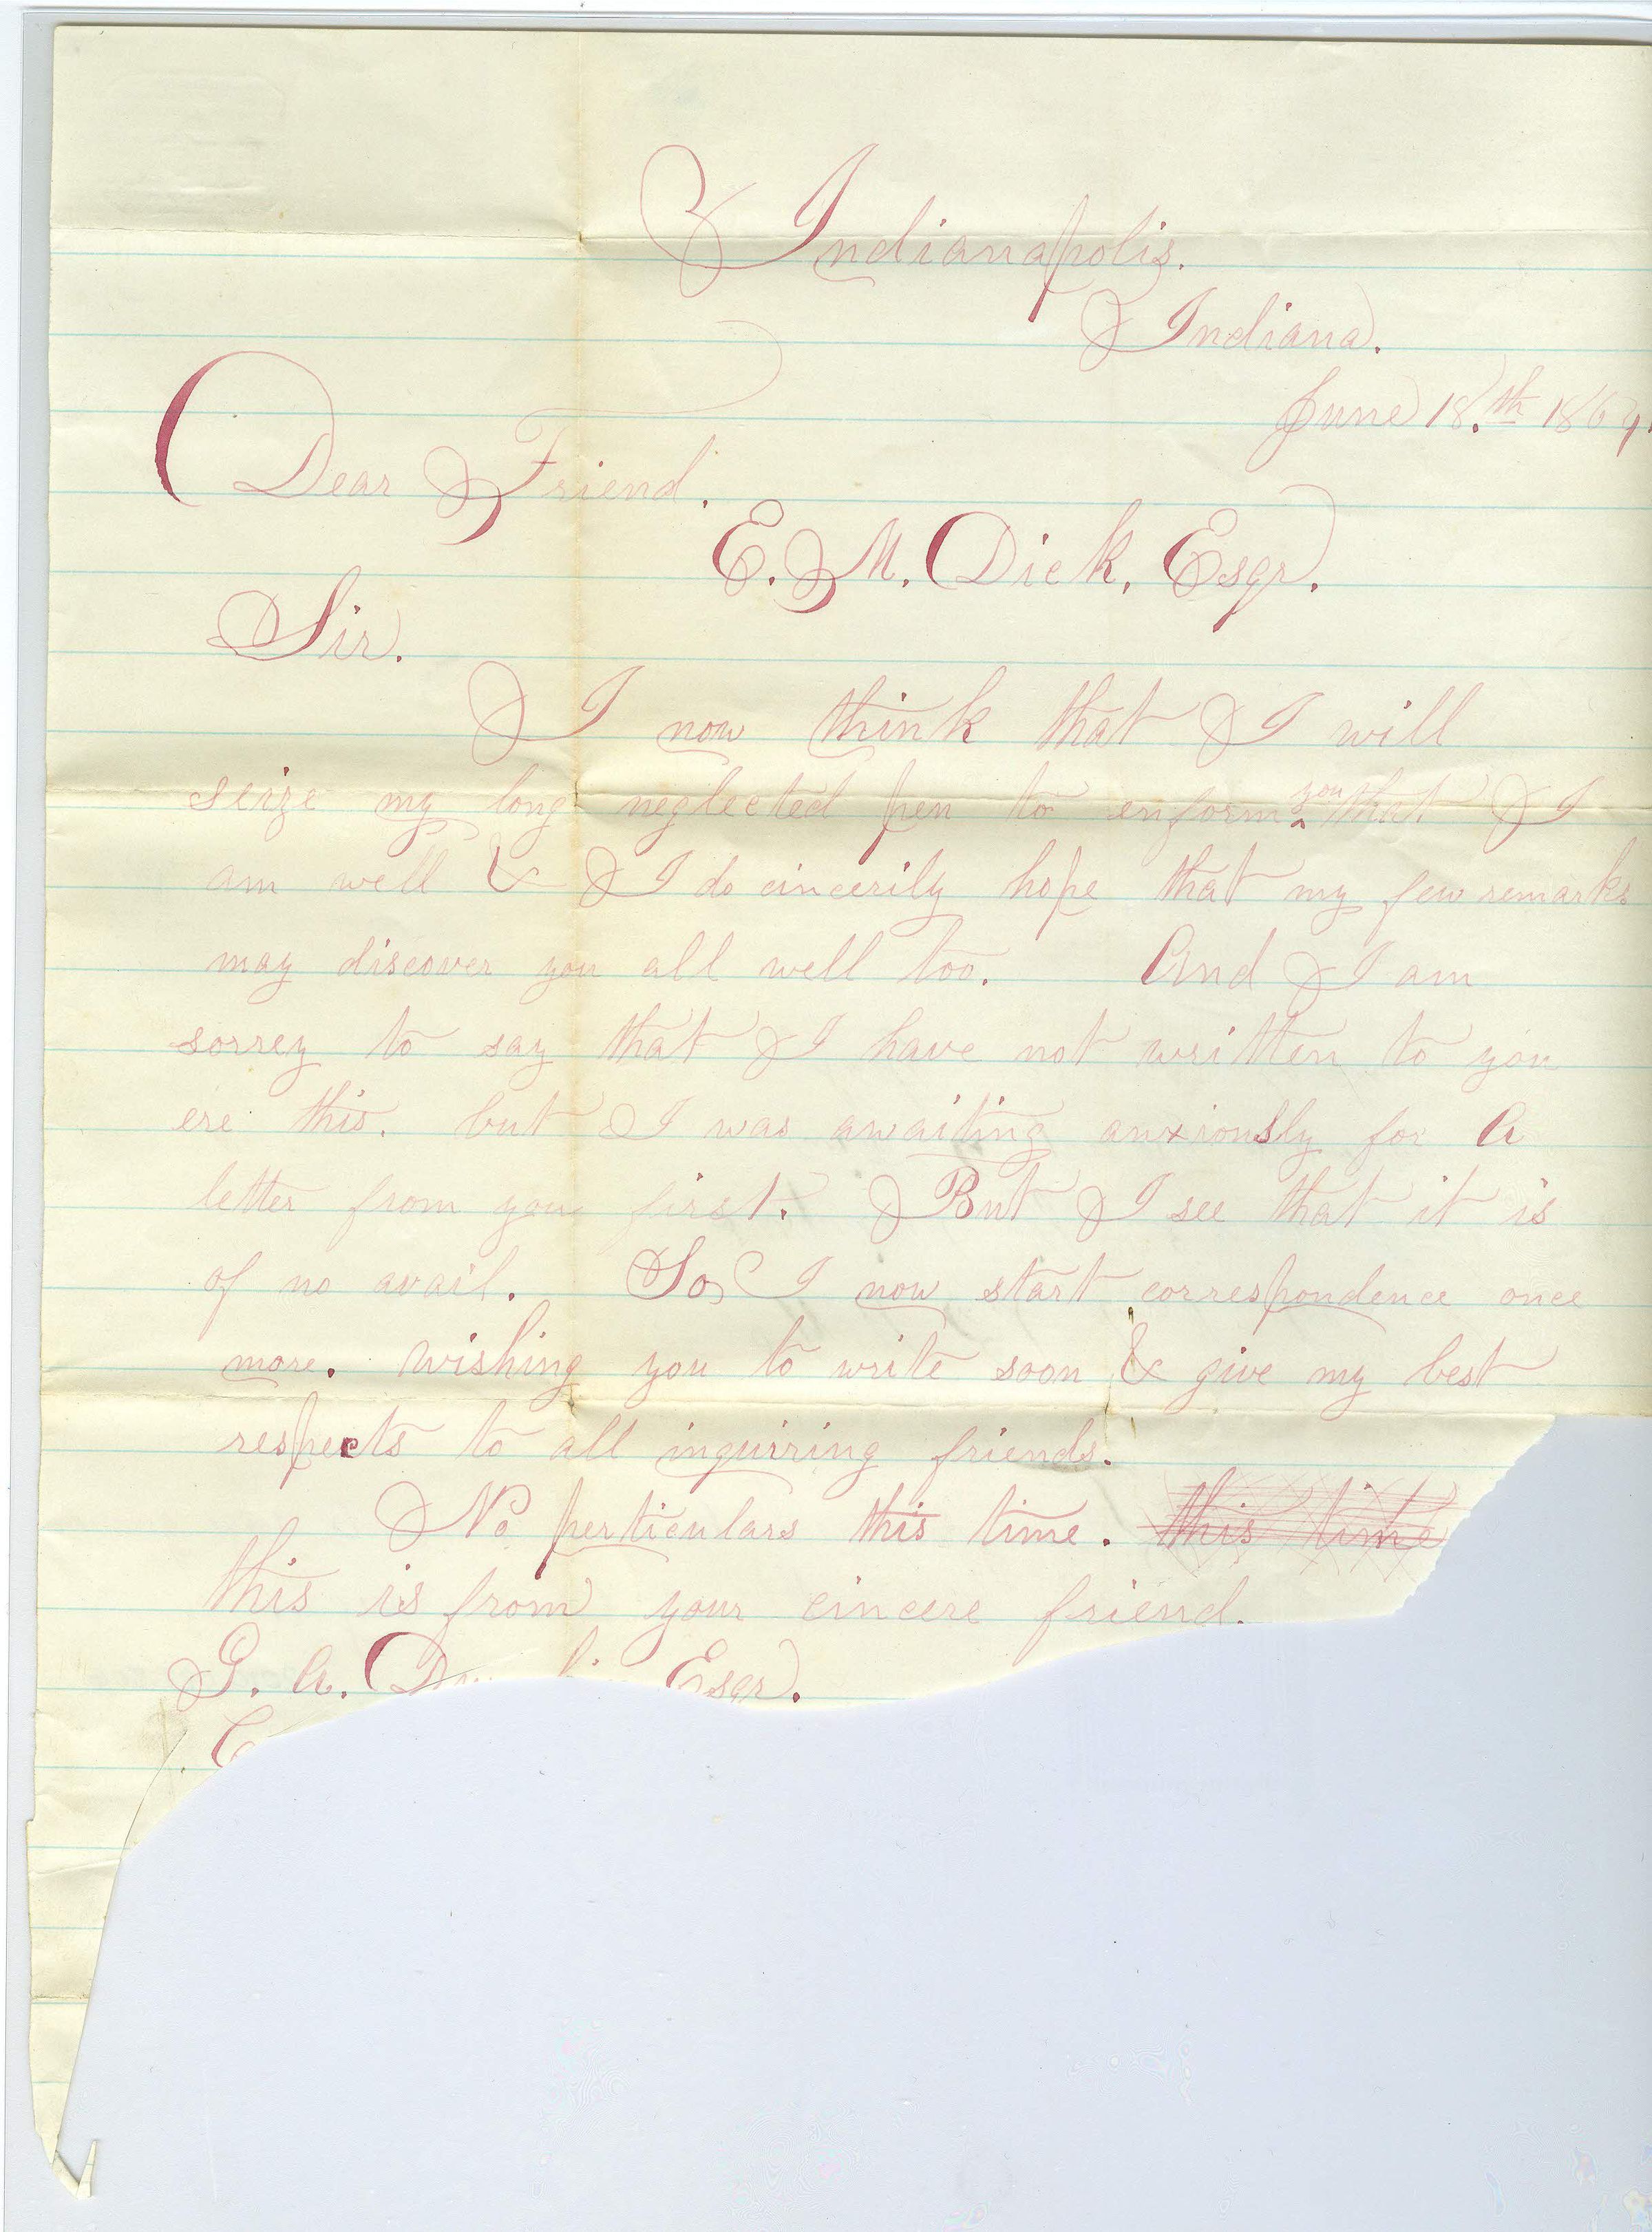 Indianapolis.
Indiana.
June 18.th 1864.
Dear Friend.
E. M. Dick, Esqr.
Sir.
I now think that I will
seize my long neglected pen to enform you that I
am well & I do cincerily hope that my few remarks
may discover you all well too. And I am
sorrey to say that I have not written to you
ere this. but I was awaiting anxiously for A
letter from you first. But I see that it is
of no avail. So I now start correspondence once
more. wishing you to write soon & give my best
respects to all inquirring friends.
No perticulars this time. this time
this is from your cincere friend.
G. A. Esqr.